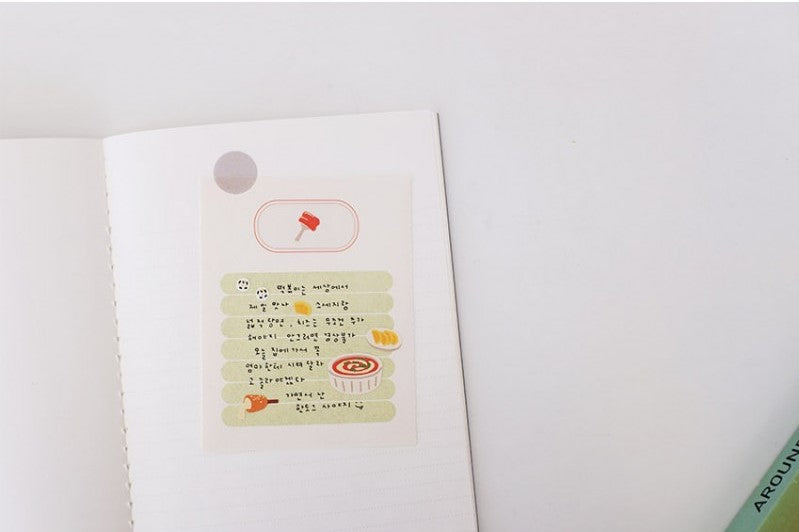 떡볶이는 세상에서
제일 맛나 소세지랑
넓적당면, 치즈는 무조건 추가
해야지 안그러면 명상불가
오늘 집에가서 꼭
엄마한테 시켜달라
고 졸라야겠다
가면서 난
핫도그 사야지
AROUN